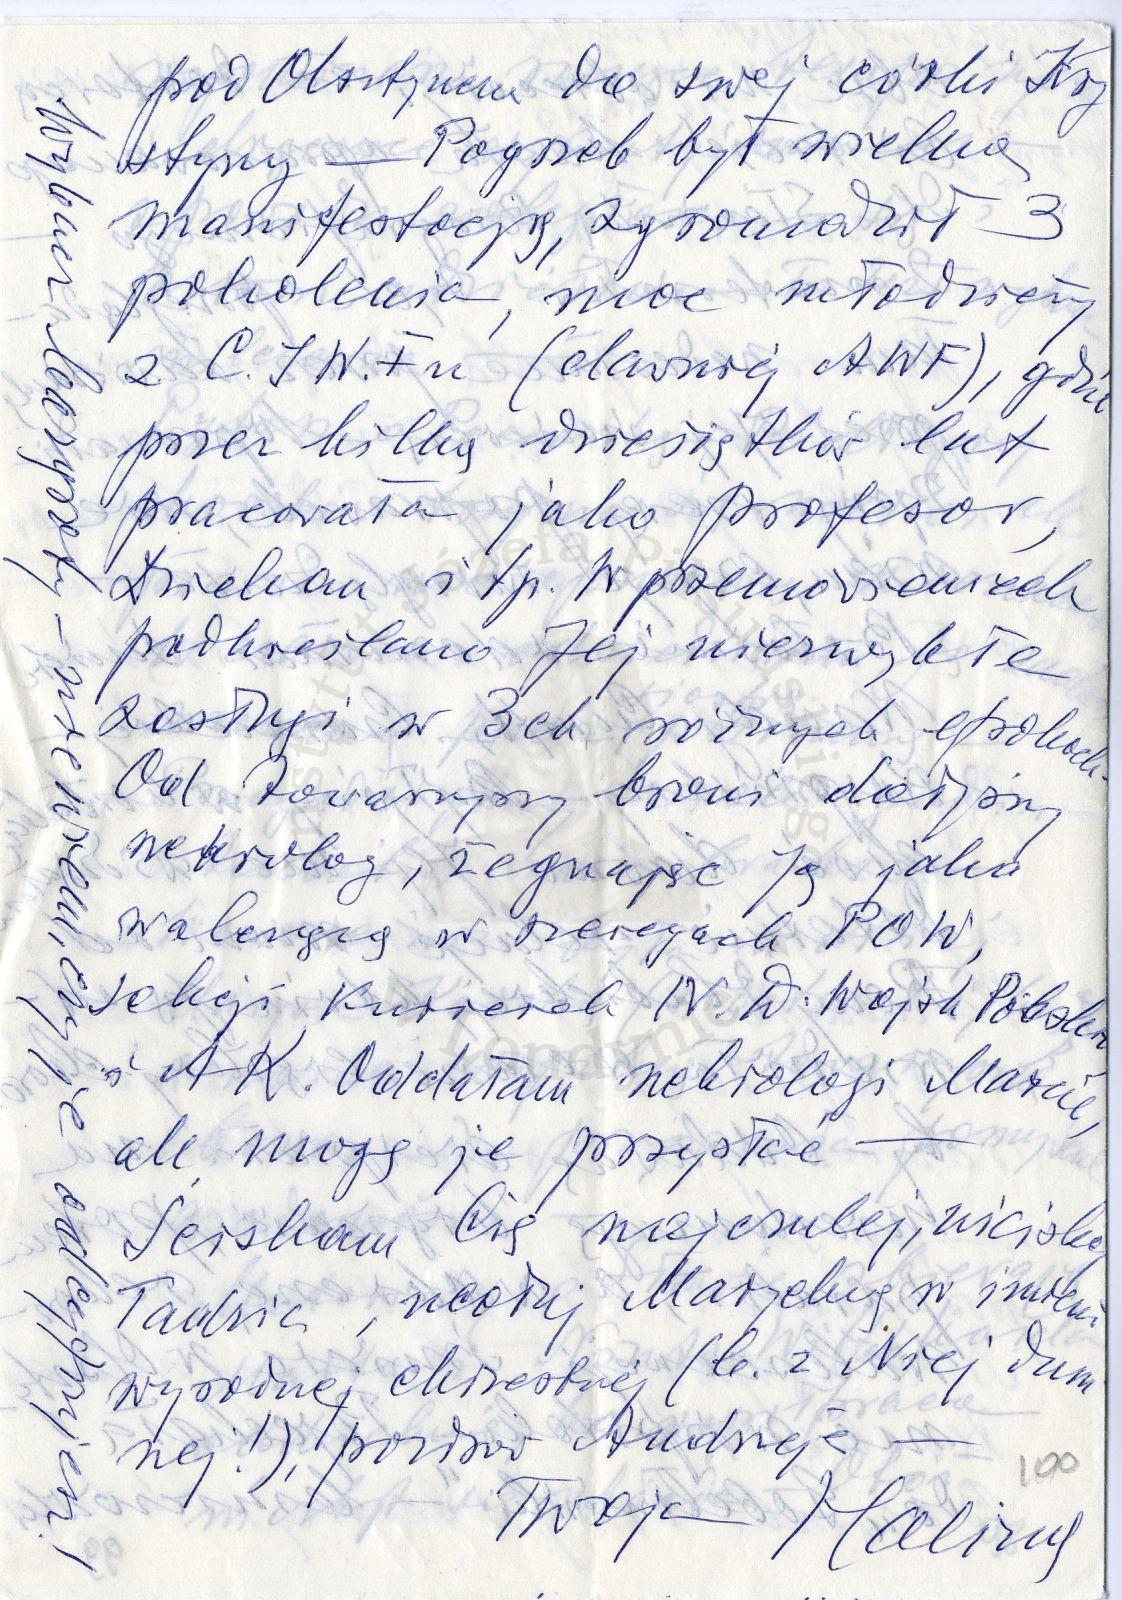 pod Olsztynem do swej córki Kry
styny — Pogrzeb był wielką
manifestacją, zgromadził 3
pokolenia, moc młodzieży
z C.I.W.F-u (dawniej AWF), gdzie
przez kilka dziesiątków lat
pracowała jako profesor,
Dziekan i tp. W przemówieniach
podkreślano Jej niezwykłe
zasługi w 3ch różnych epokach.
Od towarzyszy broni dostojny
nekrolog, żegnając Ją jako
walczącą w szeregach POW,
sekcji Kurierek N.D. Wojsk Polskich
i AK. Oddałam nekrologi Marcie,
ale mogę je przysłać —
Ściskam Cię najczulej, uściskaj
Tadzia, ucałuj Marychnę w imieniu
wyrodnej chrzestnej (b. z Niej dum
nej!), pozdrów Andrzeja —
Twoja Halina
100
Wybacz bazgroły – nie wiem, czy je odczytujesz!
Instytut Józefa Piłsudskiego
w Londynie
99